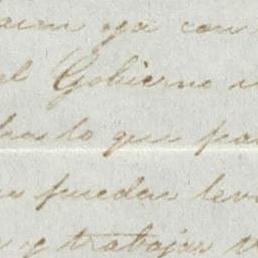 ya con
el Gobierno
lo que pa
puedan lev
y trabajar